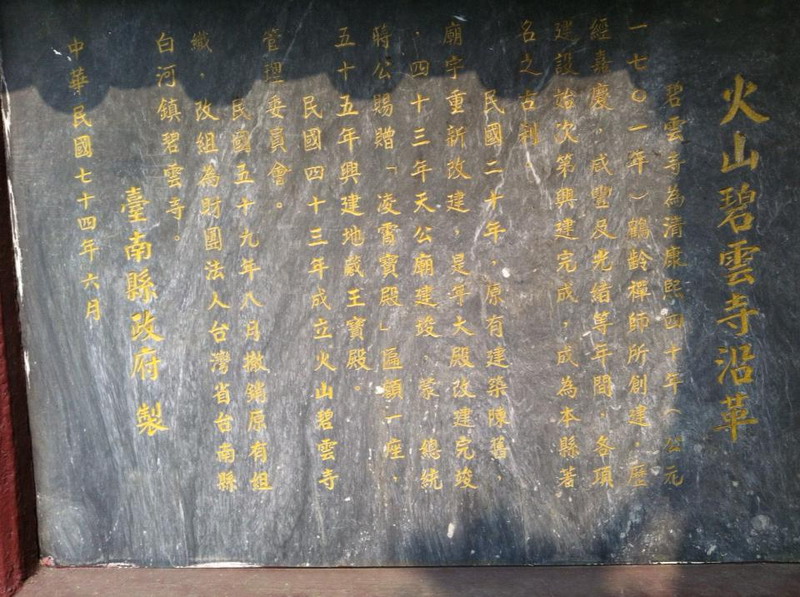 火山碧雲寺沿革
碧雲寺為清康熙四十年（公元
一七〇一年）鶴齡禪師所創建，歷
經嘉慶，咸豐及光緒等年間，各項
建設始次第興建完成，成為本縣著
名之古剎
民國二十年，原有建築陳舊，
廟宇重新改建，是年大殿改建完竣
，四十三年天公廟建竣，蒙 總統
蔣公賜贈「凌霄寶殿」匾額一座，
五十五年興建地藏王寶殿。
民國四十三年成立火山碧雲寺
管理委員會。
民國五十九年八月撤銷原有組
織，改組為財團法人台灣省台南縣
白河鎮碧雲寺。
臺南縣政府 製
中華民國七十四年六月